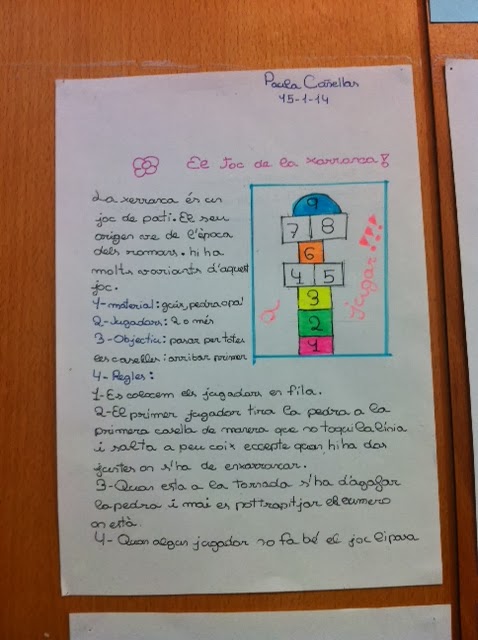 Paula Cañellas
15-1-14
El Joc de la xarranca!
La xerranca és un
joc de pati. El seu
origen ve de l'època
dels romans. hi ha
molts variants d'aquest
joc.
1-material: guix, pedra o pal
2-Jugadors: 2 o més
3-Objectiu: pasar per totes
les caselles i arribar primer
4-Regles:
9
7 8
6
4 5
3
2
1
A
jugar!!!
1-Es colocem els jugadors en fila.
2-El primer jugador tira la pedra a la
primera casella de manera que no toqui la línia
i salta a peu coix excepte quan hi ha dos
juntes on s'ha de enxarrancar.
3-Quan esta a la tornada s'ha d'agafar
la pedra i mai es pot trapitjar el numero
on està.
4-Quan algun jugador no fa bé el joc li pasa